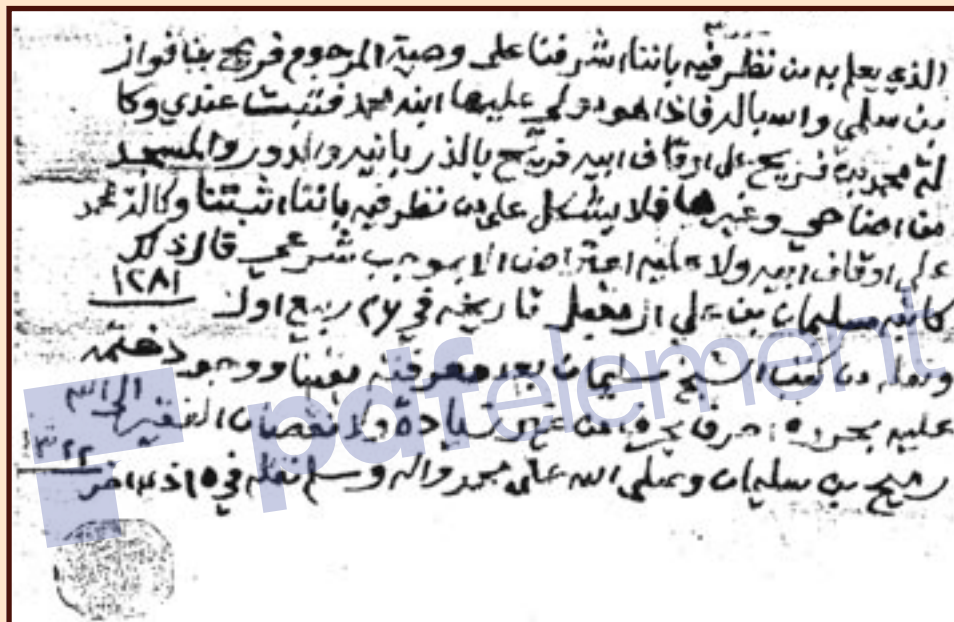 الذي يعلم به من نظر فيه باننا اشرفنا على وصية المرحوم فريح بن فواز
بن سلمي واسباله فاذا هو مولي عليها ابنه محمد فثبت عندي وكا
لة محمد بن فريح على اوقاف ابيه فريح بالذربانيه والدور والمسجد
من اضاحي وغيرها فلا يشكل على من نظر فيه باننا اثبتنا وكالة محمد
على اوقاف ابيه ولا عليه اعتراض الا بموجب شرعي قال ذلك
كاتبه سليمان بن علي ال مقبل تاريخه في ٢٦ ربيع اول ١٢٨١
ونقله من كتب الشيخ سليمان بعد معرفته يقينا ووجود ختمه
عليه بحروفه حرفا بحرف من غير زيادة ولا نقصان الفقير الى الله
بن سليمان وصلى الله على محمد واله وسلم نقله في ١٥
pdfelement